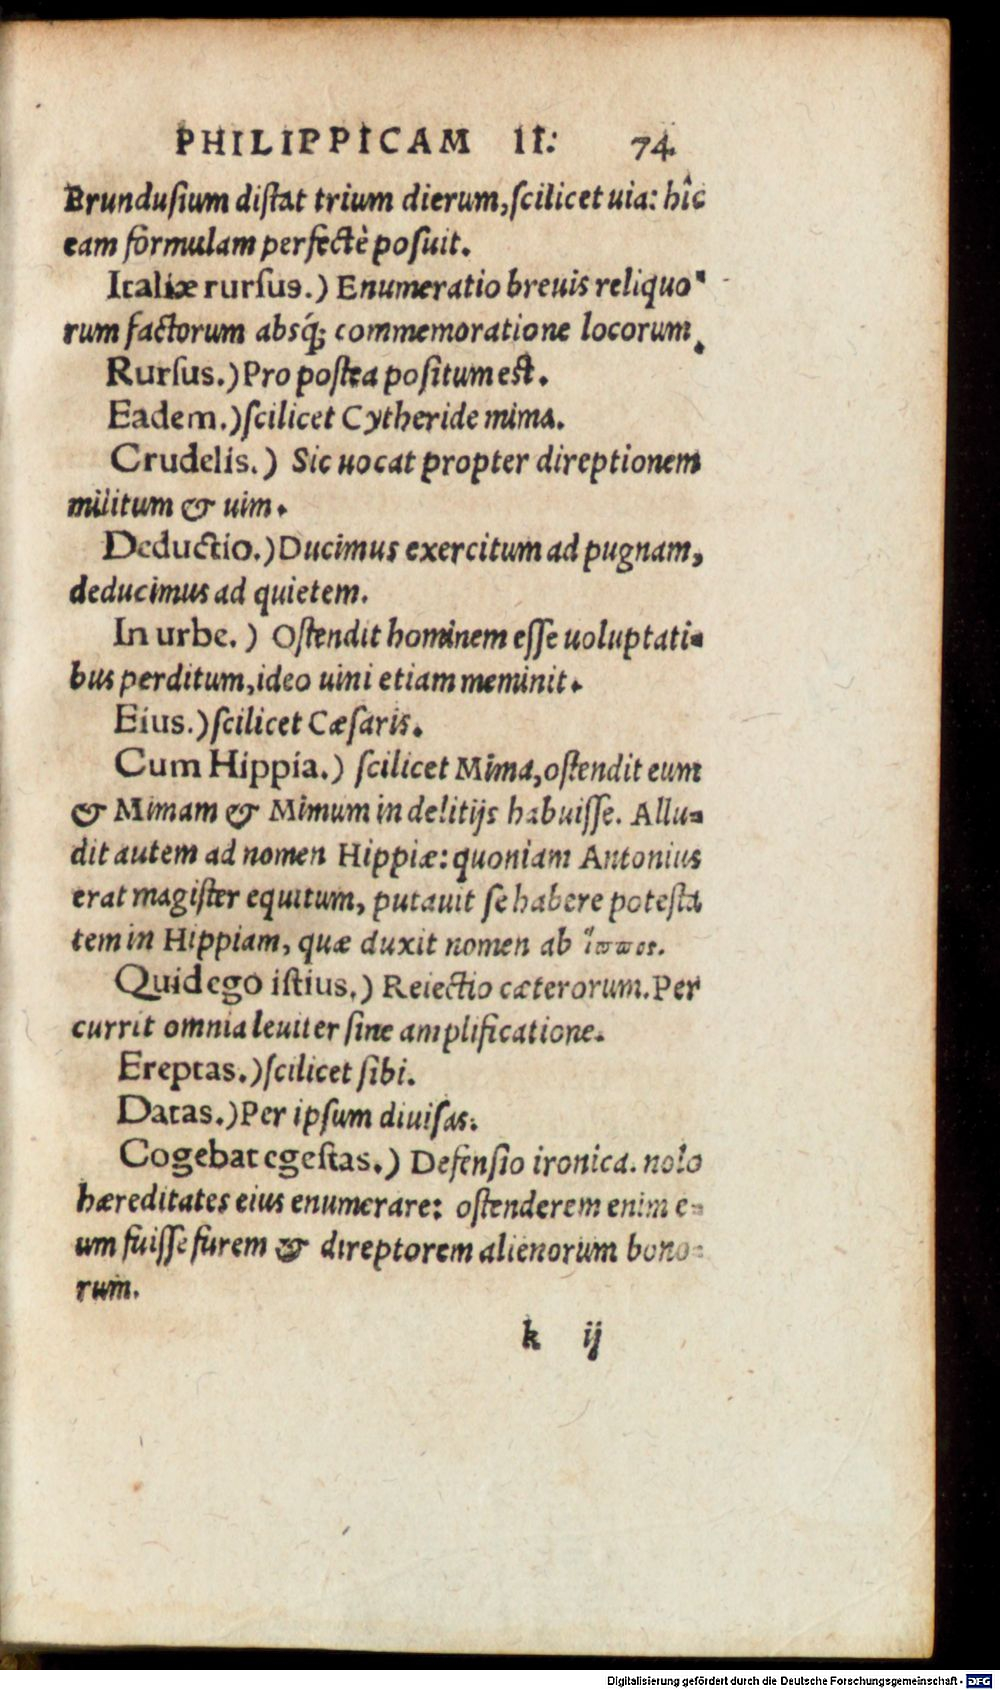 PHILIPPICAM II. 74
Brundusium distat trium dierum, scilicet uia: hîc
eam formulam perfectè posuit.
Italiæ rursus.) Enumeratio breuis reliquo-
rum factorum absq́; commemoratione locorum.
Rursus.) Pro postea positum est.
Eadem.) scilicet Cytheride mima.
Crudelis.) Sic uocat propter direptionem
militum & uim.
Deductio.) Ducimus exercitum ad pugnam,
deducimus ad quietem.
In urbe.) Ostendit hominem esse uoluptati-
bus perditum, ideo uini etiam meminit.
Eius.) scilicet Cæsaris.
Cum Hippia.) scilicet Mima, ostendit eum
& Mimam & Mimum in delitijs habuisse. Allu-
dit autem ad nomen Hippiæ: quoniam Antonius
erat magister equitum, putauit se habere potesta
tem in Hippiam, quæ duxit nomen ab ἵππος.
Quid ego istius.) Reiectio cæterorum. Per
currit omnia leuiter sine amplificatione.
Ereptas.) scilicet sibi.
Datas.) Per ipsum diuisas.
Cogebat egestas.) Defensio ironica. nolo
hæreditates eius enumerare: ostenderem enim e-
um fuisse furem & direptorem alienorum bono-
rum.
k ij
Digitalisierung gefördert durch die Deutsche Forschungsgemeinschaft - DFG